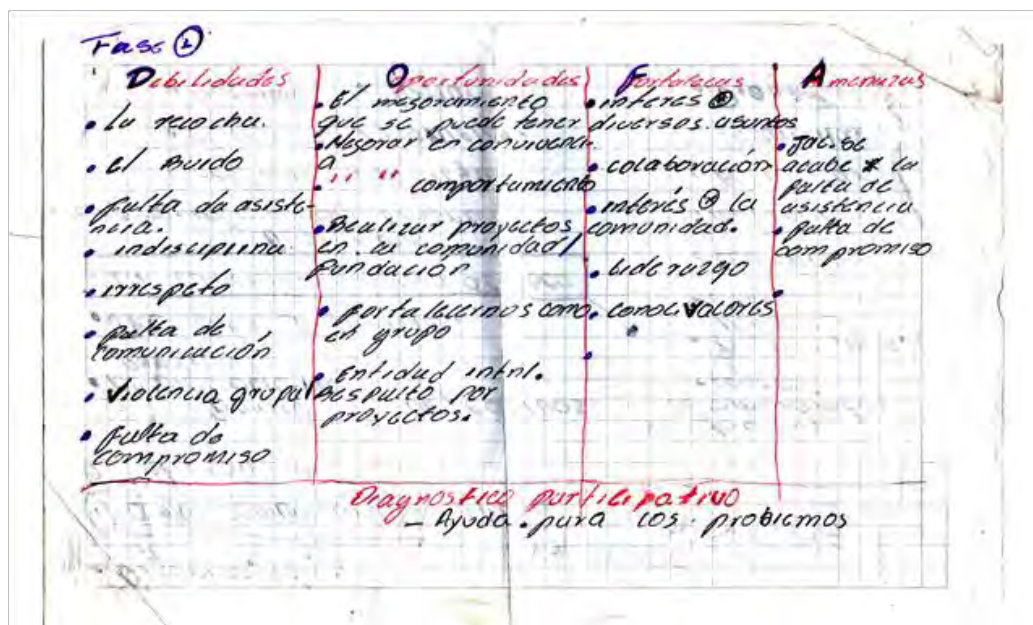 Fase 1
Debilidades
• la recocha.
• el Ruido
• falta de asiste-
ncia.
• indisciplina
• irrespeto
• falta de
comunicación
• violencia grupal
• falta de
compromiso
Oportunidades
• El mejoramiento
que se puede tener
• Mejorar en convivenci-
a
• " " comportamiento
• Realizar proyectos
en la comunidad/
fundación
• fortalecernos como
en grupo
• Entidad intnl.
Respalto por
proyectos.
Fortalezas
• interes ⊗
diversos asuntos
• colaboración
• interés ⊗ la
comunidad.
• liderazgo
• conoc valores
Amenazas
acabe * la
falta de
asistencia
• falta de
compromiso
Diagnostico participativo
– Ayuda para los problemos